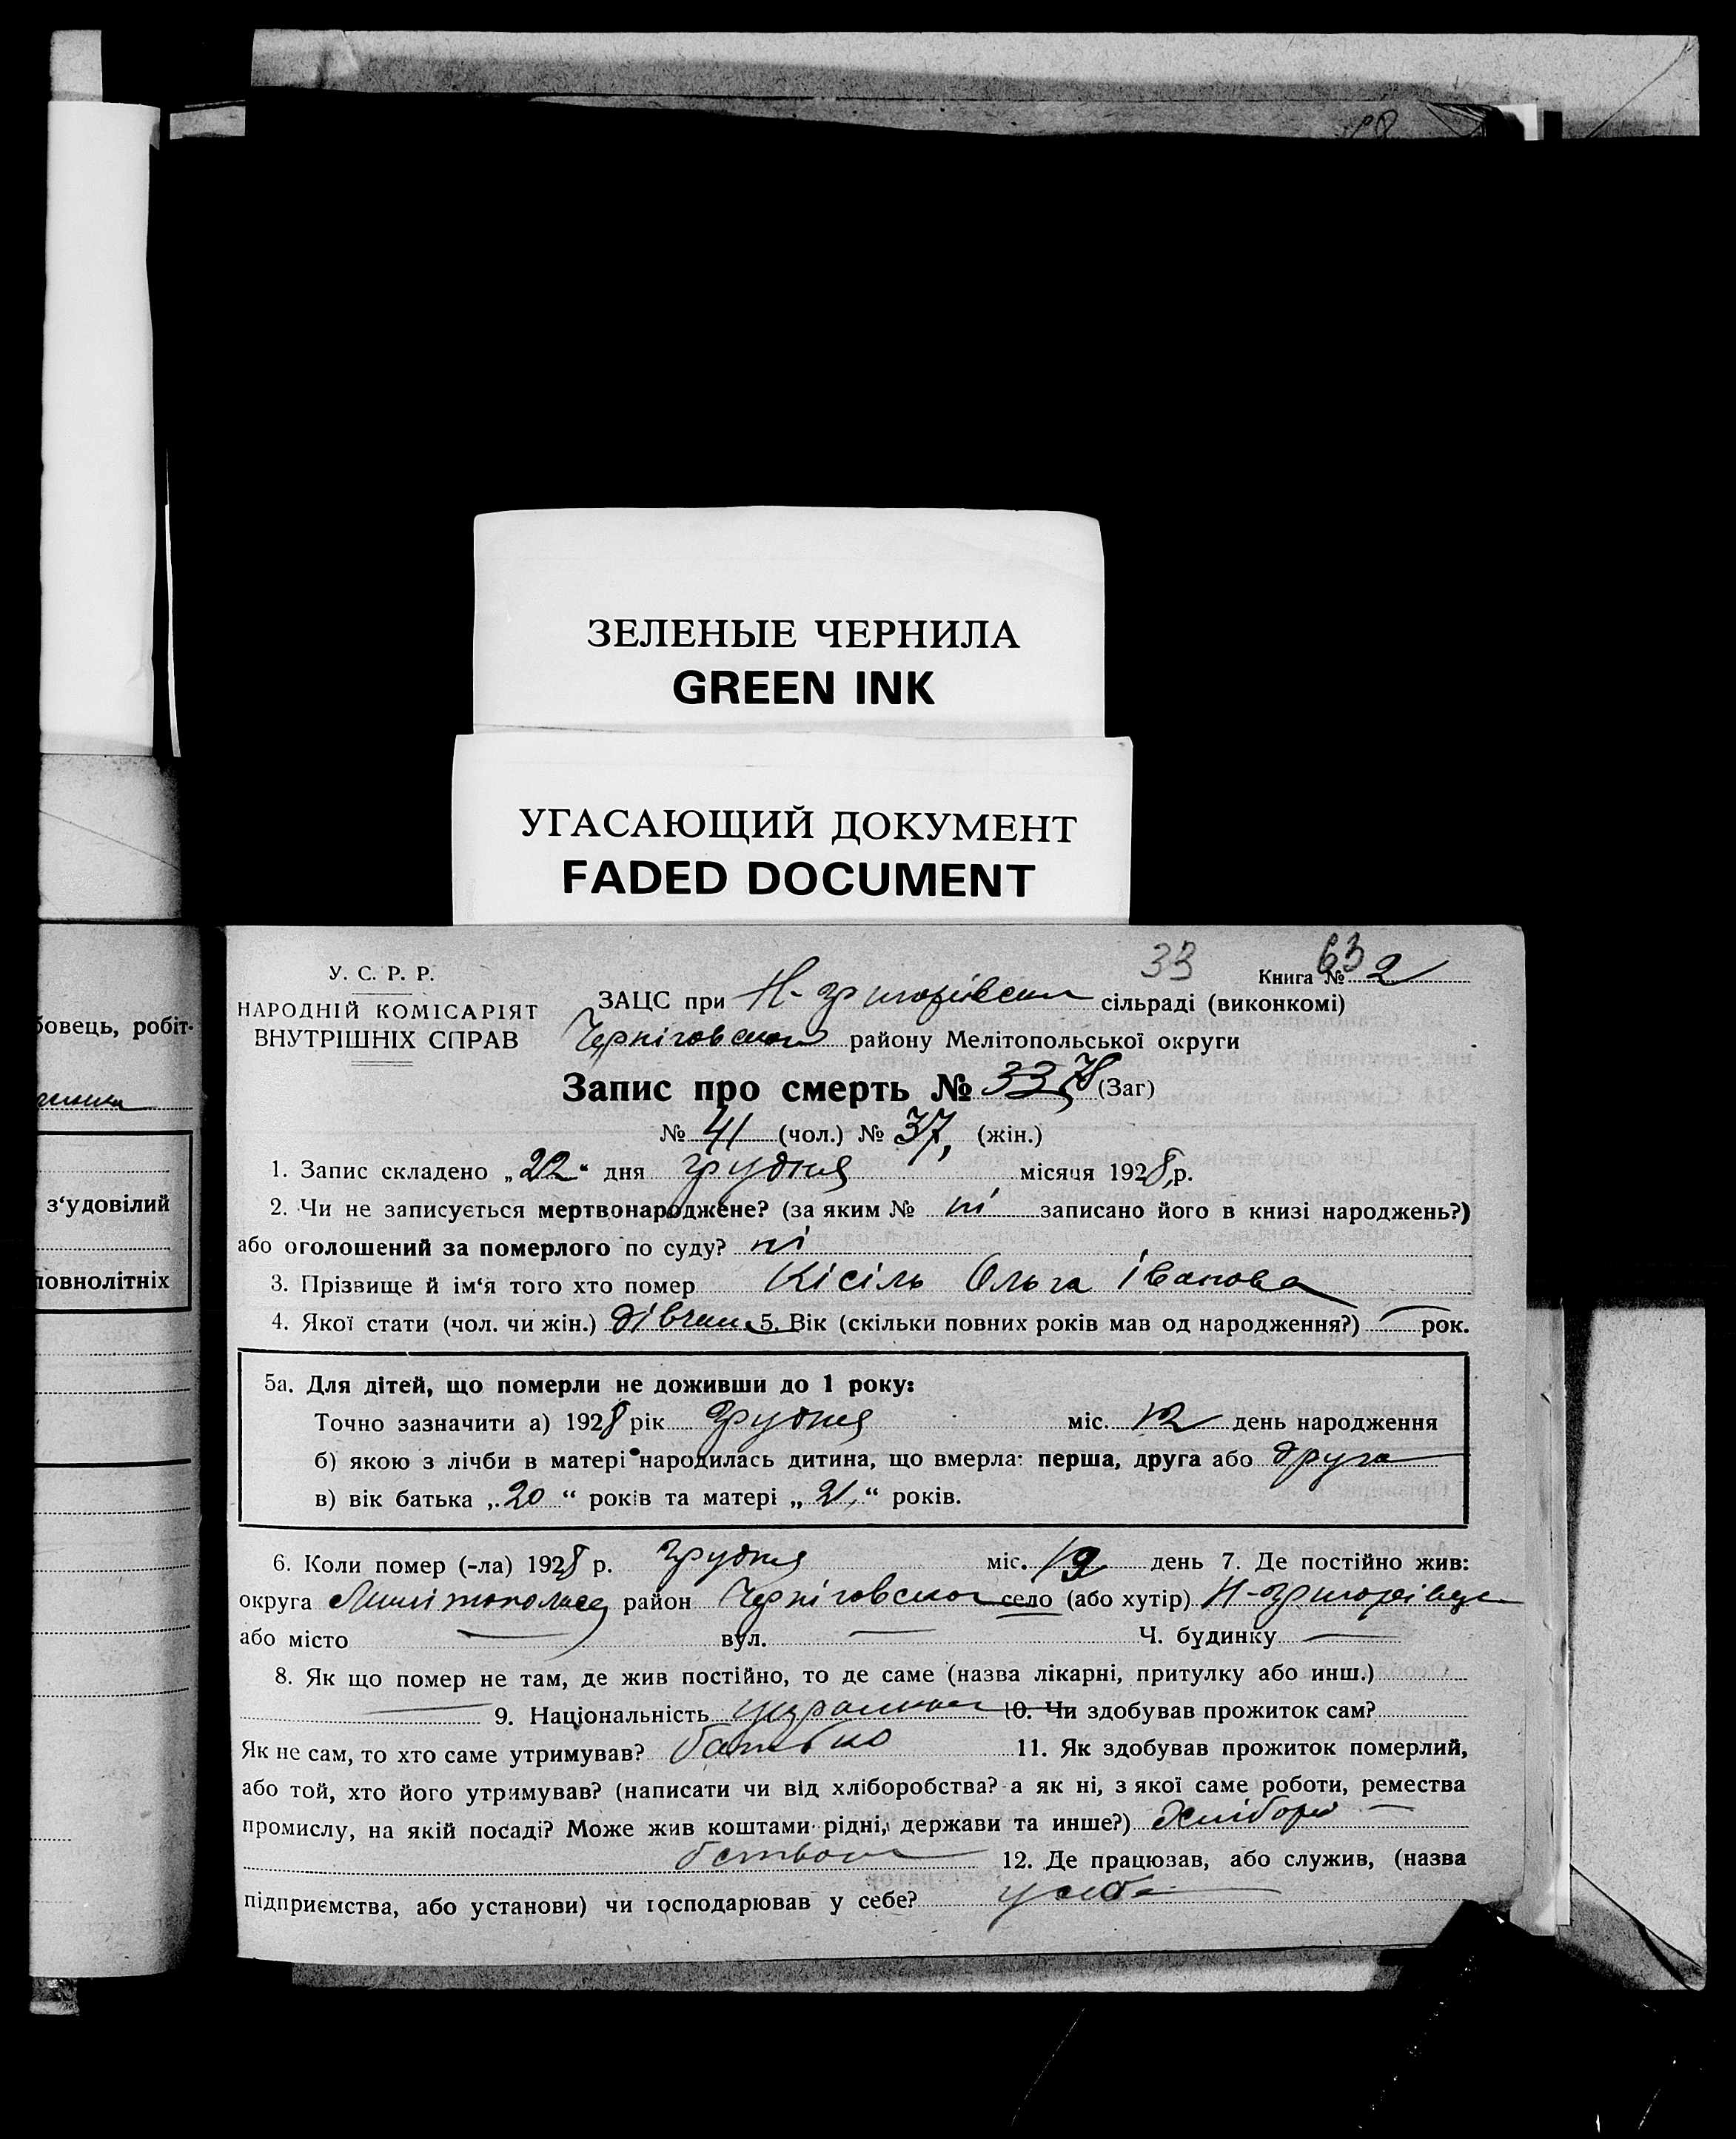 ЗЕЛЕНЫЕ ЧЕРНИЛА
GREEN INK
УГАСАЮЩИЙ ДОКУМЕНТ
FADED DOCUMENT
бовець, робіт-
з‘удовілий
повнолітніх
33 63
У. С. Р. Р.
НАРОДНІЙ КОМІСАРІЯТ
ВНУТРІШНІХ СПРАВ
Книга № 2
ЗАЦС при Н-григорівськ сільраді (виконкомі)
Черніговском району Мелітопольської округи
Запис про смерть № 78 (Заг)
№ 41 (чол.) № 37, (жін.)
1. Запис складено „22“ дня грудня місяця 1928 р.
2. Чи не записується мертвонароджене? (за яким № ні записано його в книзі народжень?)
або оголошений за померлого по суду? ні
3. Прізвище й ім‘я того хто помер Кісіль Ольга Іванова
4. Якої стати (чол. чи жін.) дівчин 5. Вік (скільки повних років мав од народження?) — рок.
5а. Для дітей, що померли не доживши до 1 року:
Точно зазначити а) 1928 рік грудня міс. 12 день народження
б) якою з лічби в матері народилась дитина, що вмерла: перша, друга або друга
в) вік батька „20“ років та матері „21,“ років.
6. Коли помер (-ла) 1928 р. грудня міс. 19 день 7. Де постійно жив:
округа район Черніговском село (або хутір) Н-григорівци
або місто — вул. — Ч. будинку —
8. Як що помер не там, де жив постійно, то де саме (назва лікарні, притулку або инш.)
— 9. Національність 10. Чи здобував прожиток сам?
Як не сам, то хто саме утримував? батько 11. Як здобував прожиток померлий,
або той, хто його утримував? (написати чи від хліборобства? а як ні, з якої саме роботи, ремества
промислу, на якій посаді? Може жив коштами рідні, держави та инше?) Хлібороб
бством 12. Де працював, або служив, (назва
підприємства, або установи) чи господарював у себе? у себе